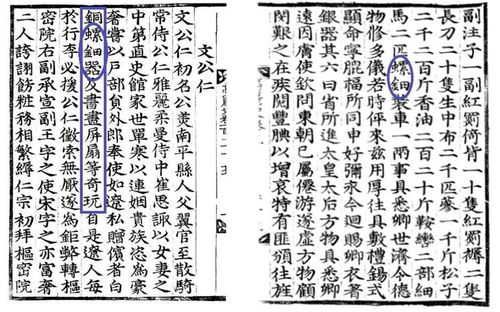 副注子一副紅罽倚背一十隻紅罽褥二隻
長刀二十隻生中布二千匹蔘一千斤松子
二千二百斤香油二百二十斤鞍轡二部細
馬二匹螺鈿裝車一兩事具悉卿世濟令德
物修多儀若時伻來玆用厚往具數禮錫式
顯命寧福所同中好彌永今迴賜卿衣著
銀器其六曰省所進太皇太后方物具悉卿
遠因膚使欽問東朝已屬僊游遂虛方物顧
閔艱之在疚閱豐腆以增哀特有匪頒往旌
文公仁
文公仁初名公美南平縣人父翼官至散騎
常侍公仁雅麗柔曼侍中崔思諏以女妻之
中第直史館家世單寒以連姻貴族恣為豪
奢嘗以戶部員外郎奉使如遼私贈儐者白
銅螺鈿器及書畫屛扇等奇玩自是遼人每
於行李必援公仁徵索無厭遂為鉅弊轉樞
密院右副承宣副王字之使宋字之亦富奢
二人誇詡飾粧務相繁縟仁宗初拜樞密院